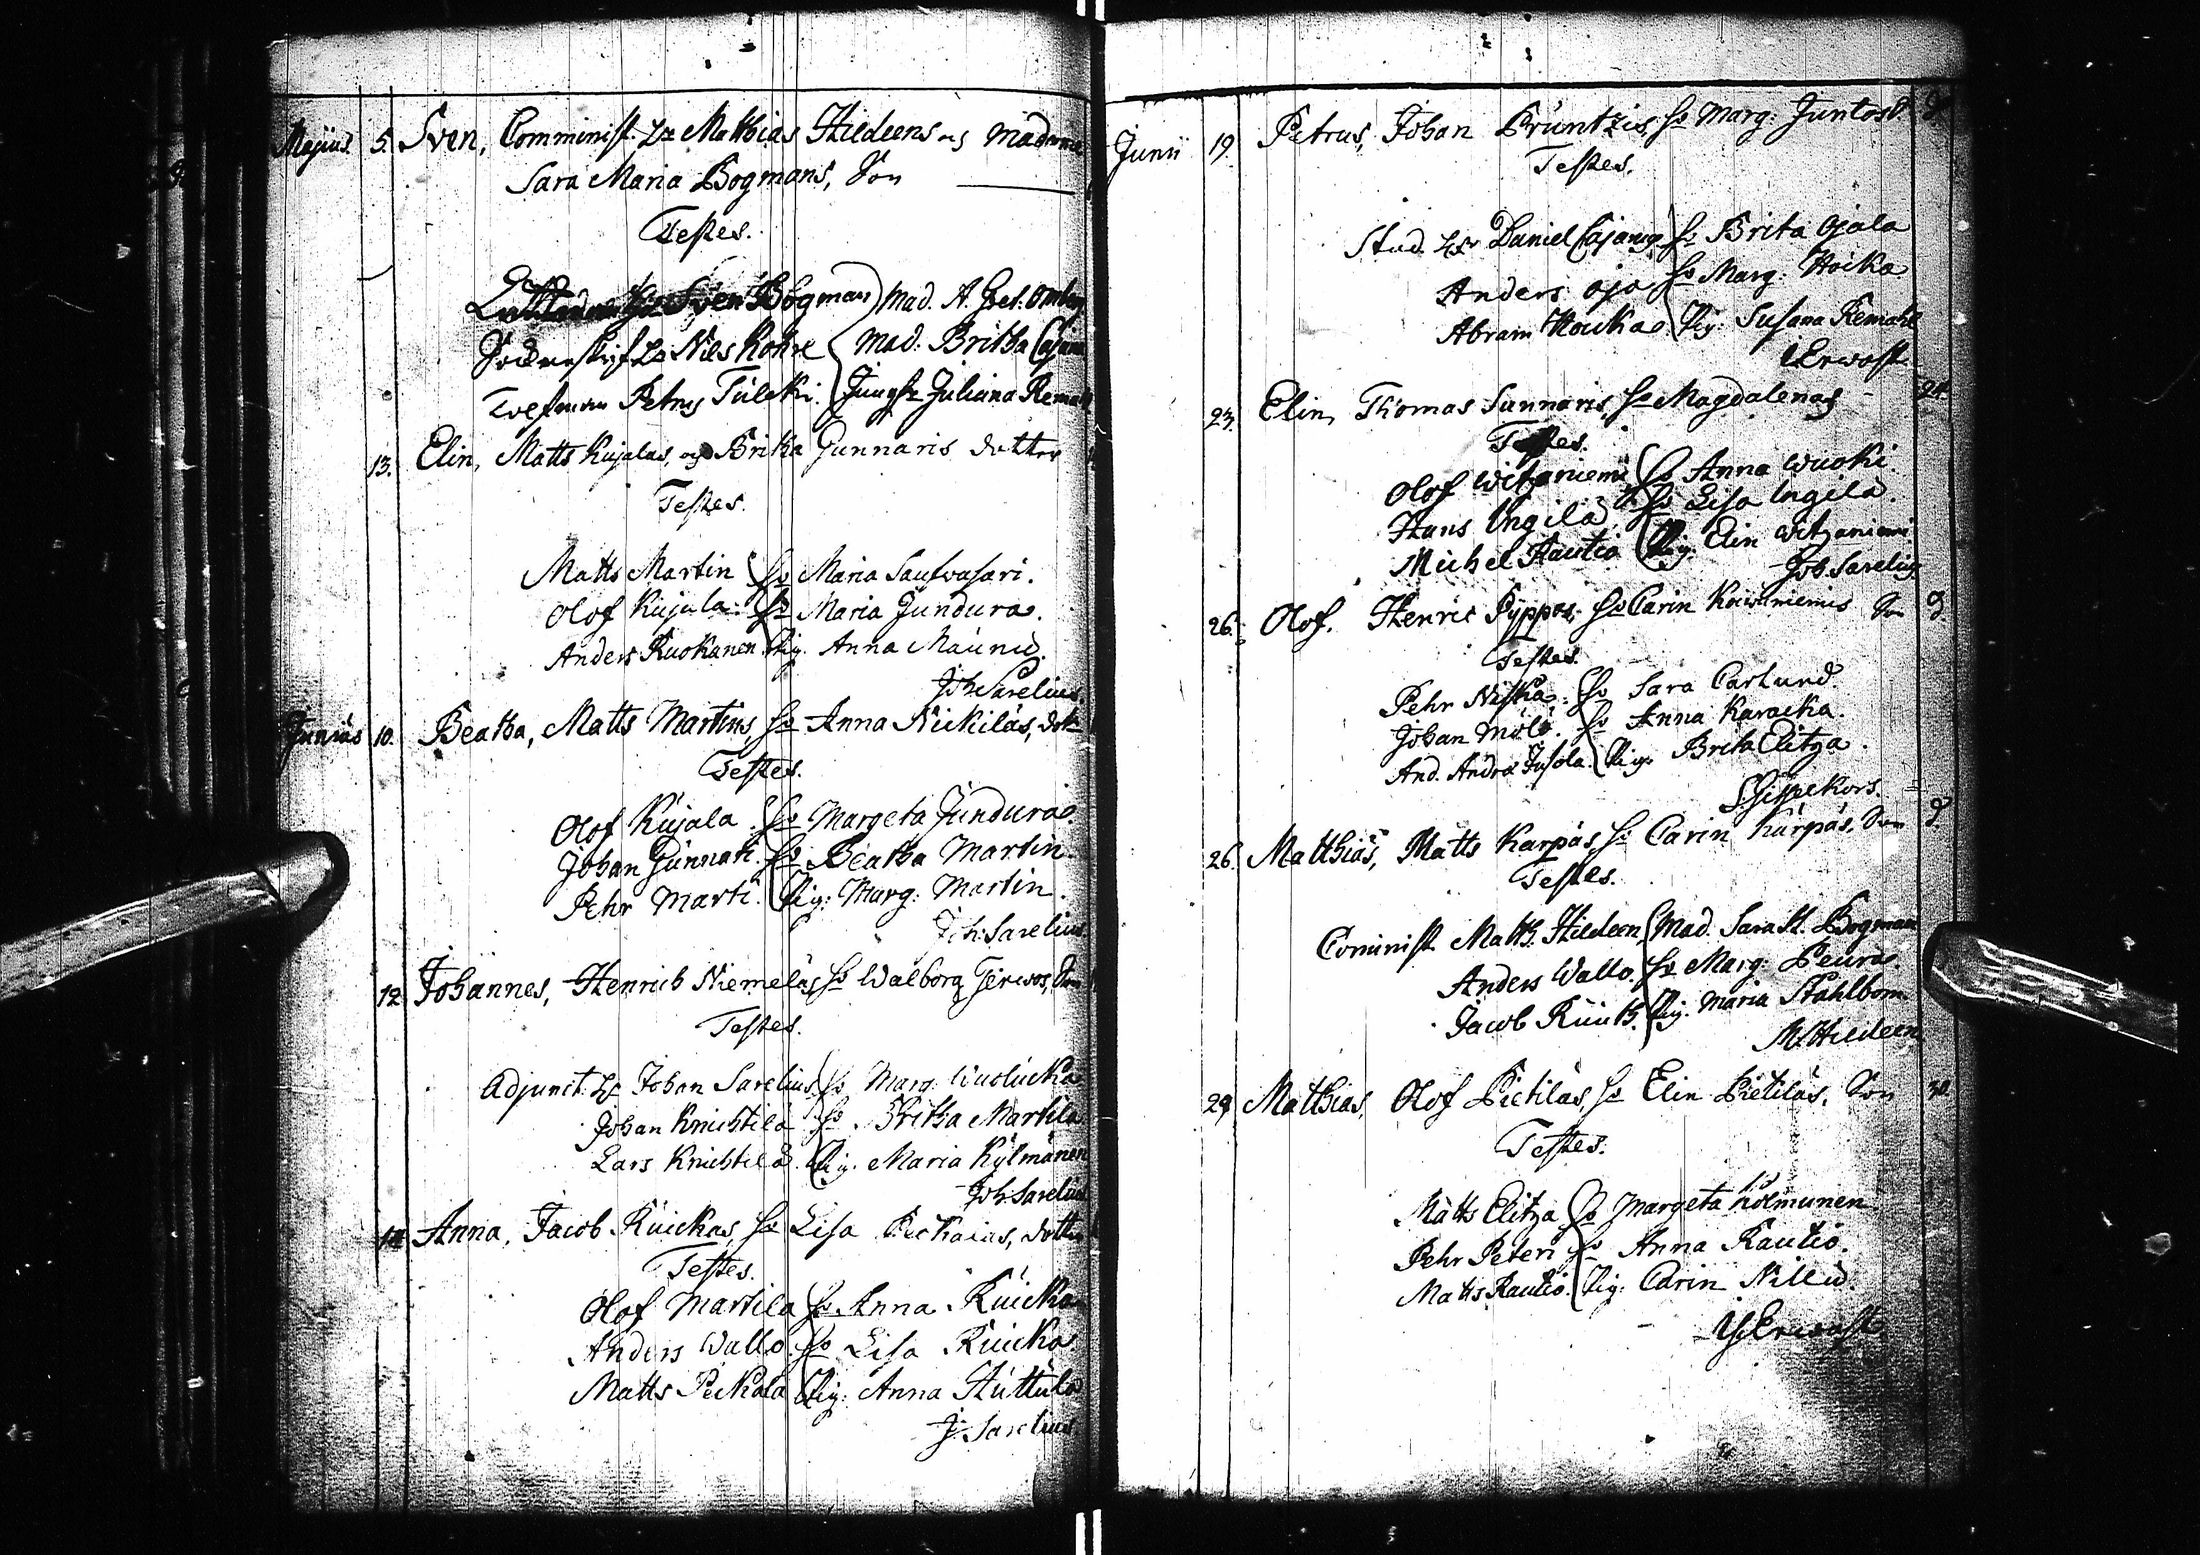 Majus. 5. Sven, Comminist. Hr Matthias Hildeens och Madame
Sara Maria Bogmans, Son
Testes.
Sven Bogman Mad. A. Gret.
Nils Mad. Britha Cajan
Petrus Tuleki. Jungfr Juliana Remah
13. Elin, Matts Kujalas, och Brita Gunnaris dotter
Testes.
Matts Martin Ho Maria Saukwasari.
Olof Kujala. Ho Maria Jundura.
Anders Ruokanen Pig. Anna Maunu.
Joh Sarelius.
Junius 10. Beatha, Matts Martins, Ho Anna Nickilas, dotr
Testes.
Olof Kujala. Ho Margeta Jundura.
Johan Gunnari. Ho Beatha Martin.
Pehr Marti. Pig: Marg: Martin.
Joh: Sarelius
12. Johannes, Henrich Niemelas, Ho Walborg Jerwos, Son
Testes.
Adjunct. Hr Johan Sarelius Ho Marg. Wuolucka
Johan Knichtila Ho Britha Martila
Lars Knichtila. Pig. Maria Kylmänen
Joh: Sarelius
14 Anna, Jacob Kuickas, Ho Lisa Peckalas, dotter
Testes.
Olof Martila Ho Anna Kuicka
Anders Wallo. Ho Lisa Kuicka
Matts Peckala Pig: Anna Huttula
J: Sarelius
Junii 19. Petrus, Johan Pruntzis, Ho Marg: Juntos
Testes.
Stud. Hr Daniel Cajanus Ho Brita Ojala
Anders Oja Ho Marg: Hoika
Abram Houka. Pig: Susana Remahl
Erwast
23. Elin, Thomas Sunnaris, Ho Magdalenas 24.
Testes.
Olof Witzaniemi Ho Anna Wuoki.
Hans Ungila. Ho Lisa Ungila.
Michel Hautio Pig. Elin Witzaniemi
Joh Sarelius
26. Olof. Henric Pyppos, Ho Carin Koiwuniemis Son
Testes.
Pehr Niska. Ho Sara Carlund.
Johan Mölö. Ho Anna Karacka.
And. Andrs Jusola. Pig. Brita Elitza.
26. Matthias, Matts Karpas, Ho Carin Kurpas, Son
Testes.
Cominist. Matth. Hildeen, Mad. Sara M. Bogman
Anders Wallo. Ho Marg: Peura.
Jacob Ruuth. Pig. Maria Stahlbom.
M: Hildeen
29. Matthias, Olof Pietilas, Ho Elin Pietilas. Son 30.
Testes.
Matts Elitza Ho Margeta Holmunen
Pehr Peteri Ho Anna Rautio.
Matts Rautio. Pig: Carin Nilev.
Erwast.